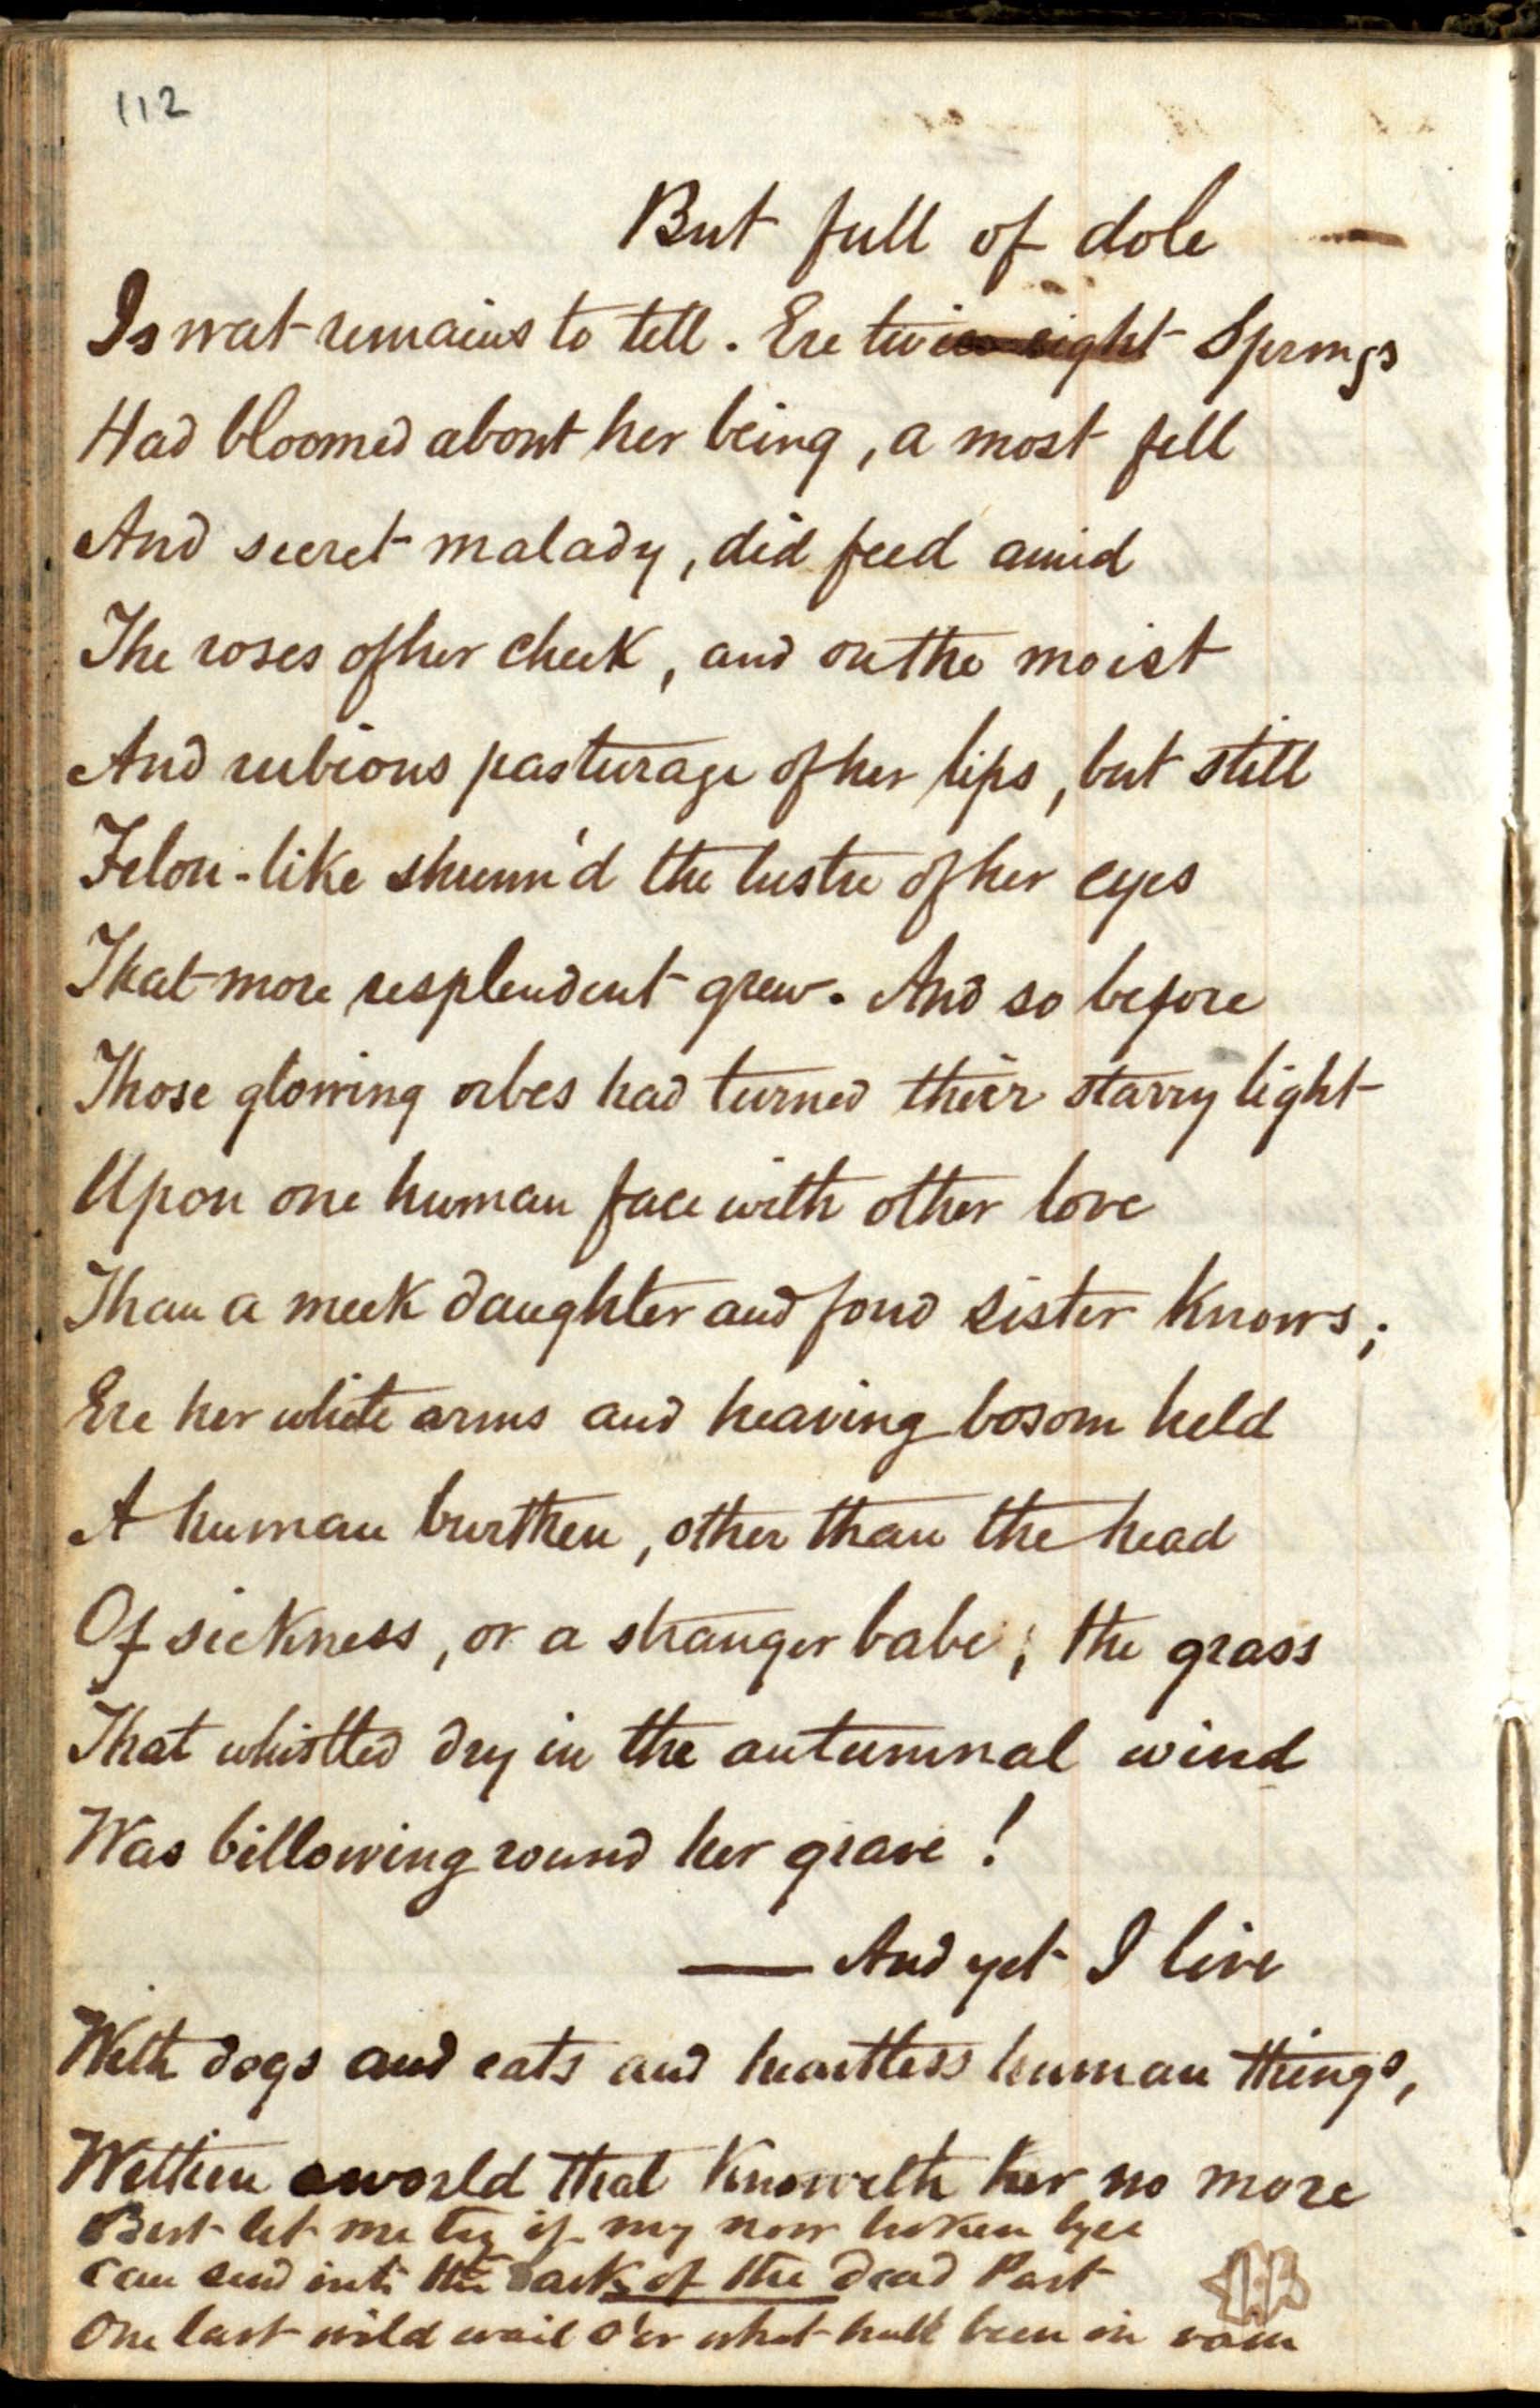 112
But full of dole
Is wat remains to tell. Ere twice eight Springs
Had bloomed about her being, a most fell
And secret malady, did feed amid
The roses of her cheek, and on the moist
And rubious pasturage of her lips, but still
Felon-like shunn'd the lustre of her eyes
That more resplendent grew. And so before
Those glowing orbes had turned their starry light
Upon one human face with other love
Than a meek daughter and fond sister knows;
Ere her white arms and heaving bosom held
A human burthen, other than the head
Of sickness, or a stranger babe; the grass
That whistled dry in the autumnal wind
Was billowing round her grave!
— And yet I live
With dogs and cats and heartless human things,
Within a world that knoweth her no more
But let me try if my now broken lyre
Can send into the dark of the dead Past
One last wild wail o'er what hath been in vain